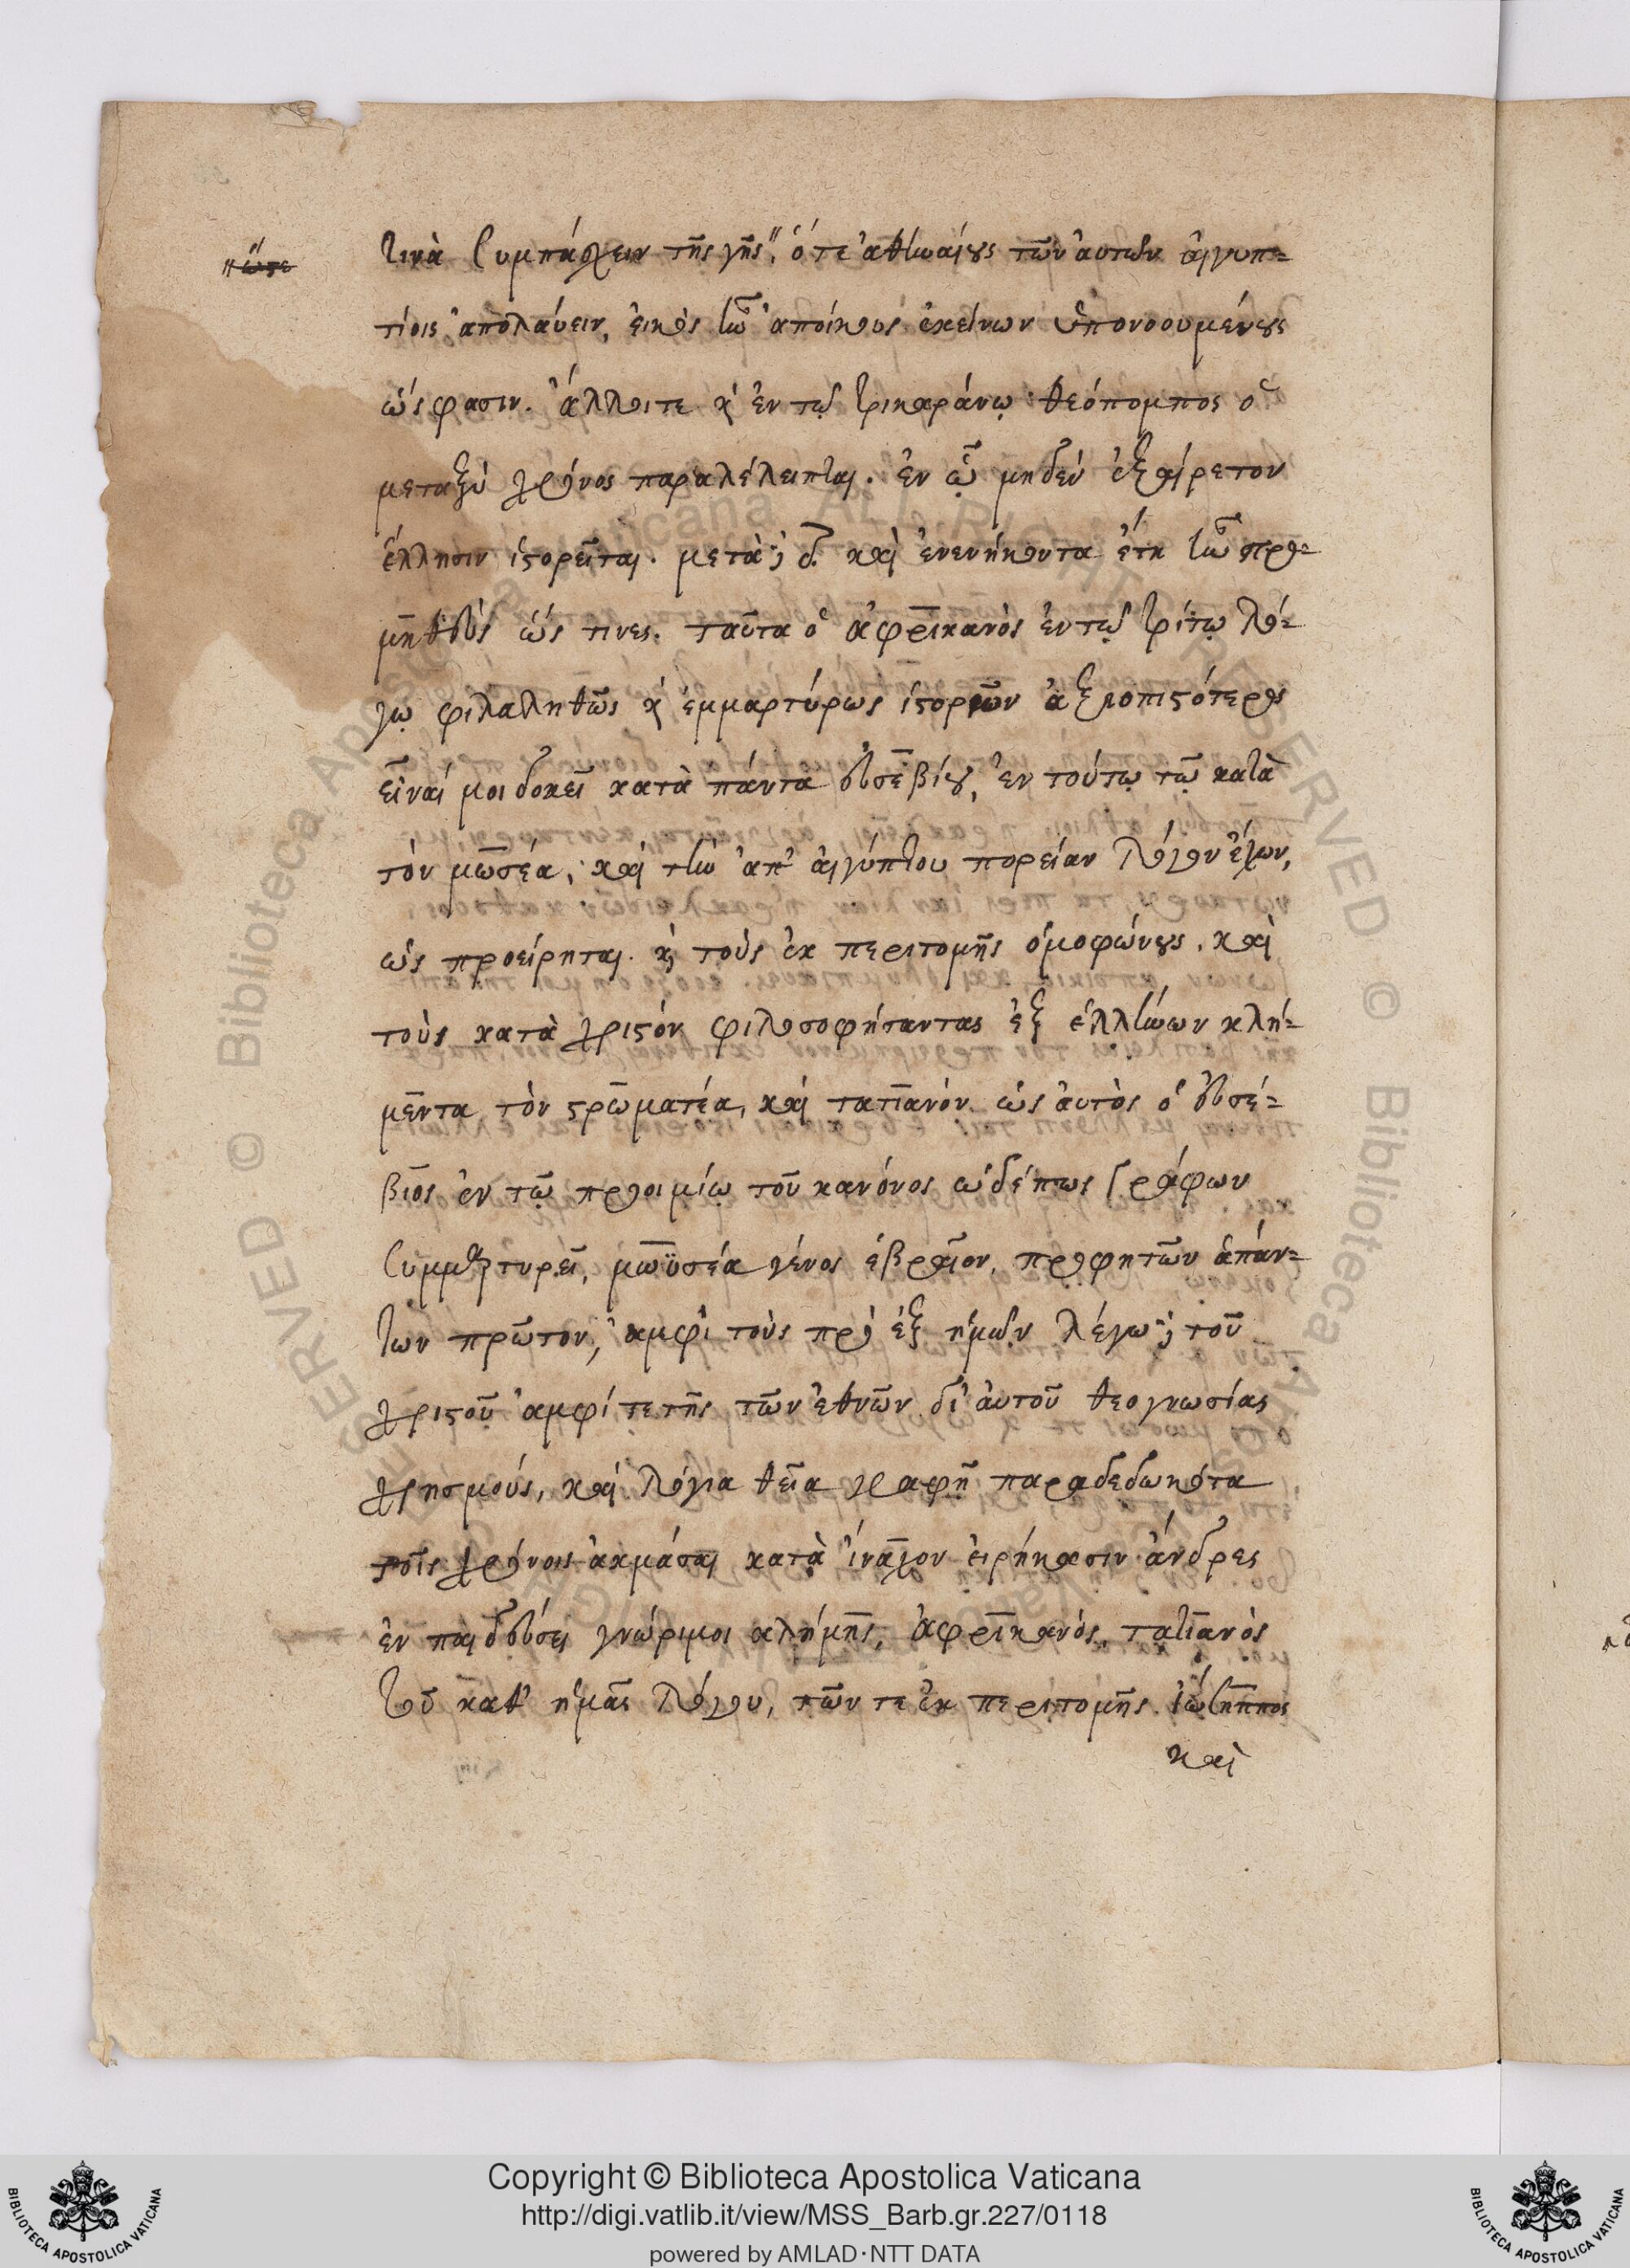 τινὰ συμπάσχειν τῆς γῆς", ὅτε ἀθηναίους τῶν αὐτῶν αἰγυπ=
ὥστε
τίοις ἀπολαύειν, εἰκὸς ἦν ἀποίκους ἐκείνων ὑπονοουμένους
ὥς φασιν. ἄλλοι τε καὶ ἐν τῷ τρικαράνῳ θεόπομπος ὁ
μεταξὺ χρόνος παραλέλειπται. ἐν ᾧ μηδὲν ἐξαίρετον
ἕλλησιν ἱστορεῖται. μετὰ δὲ δ. καὶ ἐνενήκοντα ἔτη ἦν προ=
μηθεὺς ὥς τινες. ταῦτα ὁ ἀφρικανὸς ἐν τῷ τρίτῳ λό=
γῳ φιλαλήθως καὶ ἐμμαρτύρως ἱστορῶν ἀξιοπιστότερος
εἶναί μοι δοκεῖ κατὰ πάντα εὐσεβίου, ἐν τούτῳ τῷ κατὰ
τὸν μωσέα, καὶ τὴν ἀπ' αἰγύπτου πορείαν λόγον ἔχων,
ὡς προείρηται. καὶ τοὺς ἐκ περιτομῆς ὁμοφώνους. καὶ
τοὺς κατὰ χριστὸν φιλοσοφήσαντας ἐξ ἑλλήνων κλή=
μεντα τὸν στρωματέα, καὶ τατιανόν. ὡς αὐτὸς ὁ εὐσέ=
βιος ἐν τῷ προοιμίῳ τοῦ κανόνος ὡδέπως γράφων
συμμαρτυρεῖ, μωϋσέα γένος ἑβραῖον, προφητῶν ἁπάν=
των πρῶτον, ἀμφὶ τοὺς πρὸ ἐξ ἡμῶν λέγω δὲ τοῦ
χριστοῦ ἀμφί τε τῆς τῶν ἐθνῶν δι' αὐτοῦ θεογνωσίας
χρησμούς, καὶ λόγια θεῖα γραφῇ παραδεδωκότα
τοῖς χρόνοις ἀκμάσαι κατὰ ἴναχον εἰρήκασιν ἄνδρες
ἐν παιδεύσει γνώριμοι κλήμης, ἀφρικανός, τατιανὸς
τοῦ καθ' ἡμᾶς λόγου, τῶν τε ἐκ περιτομῆς. ἰώσηππος
καὶ
Copyright © Biblioteca Apostolica Vaticana
http://digi.vatlib.it/view/MSS_Barb.gr.227/0118
powered by AMLAD·NTT DATA
BIBLIOTECA APOSTOLICA VATICANA
BIBLIOTECA APOSTOLICA VATICANA